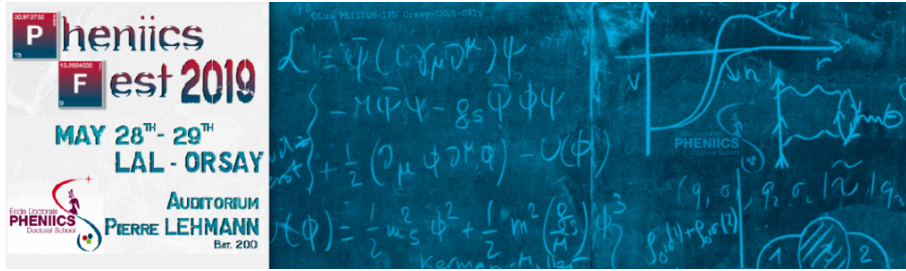 30.973732
P
15
heniics
18.9984032
F
9
est 2019
MAY 28TH- 29TH
LAL - ORSAY
École Doctorale
PHENIICS
Doctoral School
AUDITORIUM
PIERRE LEHMANN
BAT. 200
ℒ = ψ̄(iγμ∂^μ)ψ
- Mψ̄ψ - gs ψ̄ϕψ
+ 1/2 (∂μ ϕ ∂^μ ϕ) - U(ϕ)
(ϕ) = 1/2 m_s^2 ϕ^2 + 1/2 m^2 (gs/M) ϕ^3
V
r
PHENIICS
Doctoral School
1
2